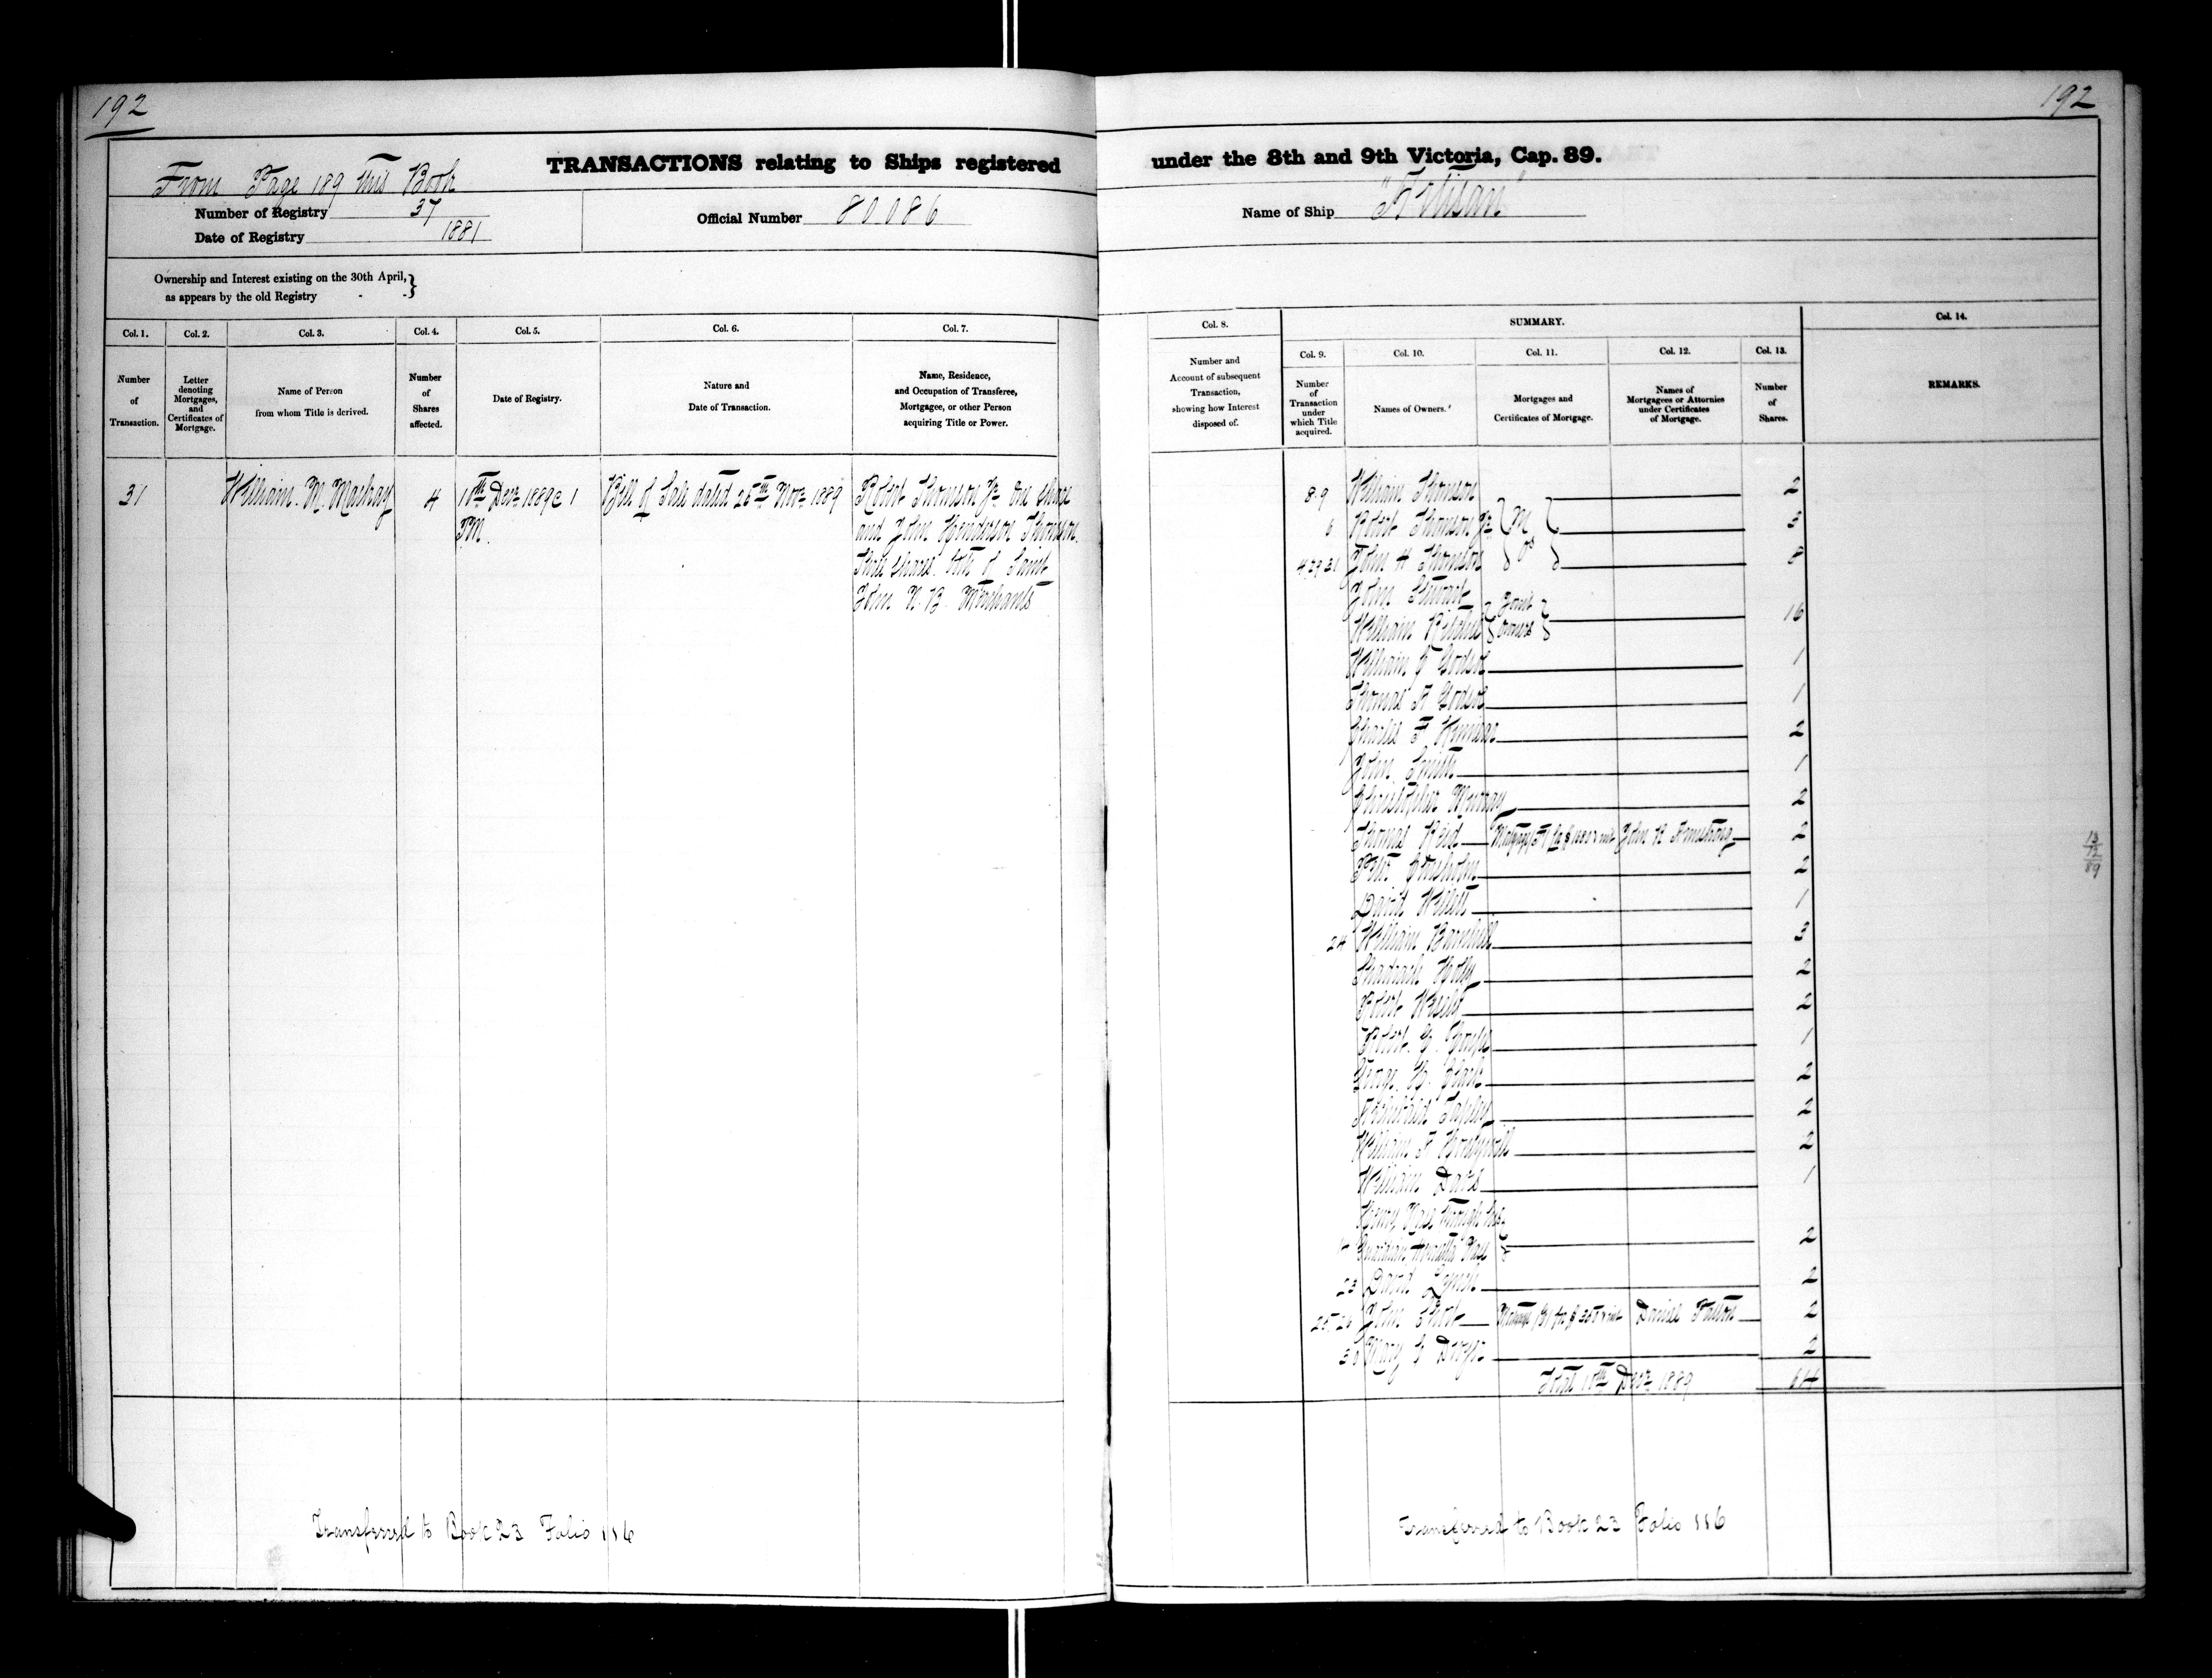 192
TRANSACTIONS relating to Ships registered
From Page 189 this Book
Number of Registry 37
Date of Registry 1881
Official Number 80086
Ownership and Interest existing on the 30th April,
as appears by the old Registry
Col. 1. Col. 2. Col. 3. Col. 4. Col. 5. Col. 6. Col. 7.
Number of Transaction.
Letter denoting Mortgages, and Certificates of Mortgage.
Name of Person from whom Title is derived.
Number of Shares affected.
Date of Registry.
Nature and Date of Transaction.
Name, Residence, and Occupation of Transferee, Mortgagee, or other Person acquiring Title or Power.
31 William M. Mackay 4 10th Decr 1889 @ 1 PM. Bill of Sale dated 26th Novr 1889
Robert Thomson Jr. One share
and John Henderson Thomson
Three shares. both of Saint
John N.B. Merchants
Transferred to Book 23 Folio 116
192
under the 8th and 9th Victoria, Cap. 89.
Name of Ship "Artisan"
Col. 8. SUMMARY. Col. 14.
Col. 9. Col. 10. Col. 11. Col. 12. Col. 13.
Number and Account of subsequent Transaction, showing how Interest disposed of.
Number of Transaction under which Title acquired.
Names of Owners.
Mortgages and Certificates of Mortgage.
Names of Mortgagees or Attornies under Certificates of Mortgage.
Number of Shares.
REMARKS.
8.9 William Thomson 2
6 Robert Thomson Jr 3
John H Thomson
John Stewart
William Ritchie Joint Owners 16
William 1
Thomas A 1
Charles F 2
John Smith 1
Christopher Murray 2
Thomas Reid John R Armstrong 2
Chisholm 2
David Willett 1
24 William Barnhill 3
Shadrach Holly 2
Robert 2
Robert 1
George Clark 2
Archibald Tapley 2
William A 2
William Davis 1
Henry Nase through his
Guardian Nase 2
23 David Lynch 2
25.26 John Daniel Patton 2
30 Mary 2
Total 10th Decr 1889 64
13
12
89
Transferred to Book 23 Folio 116